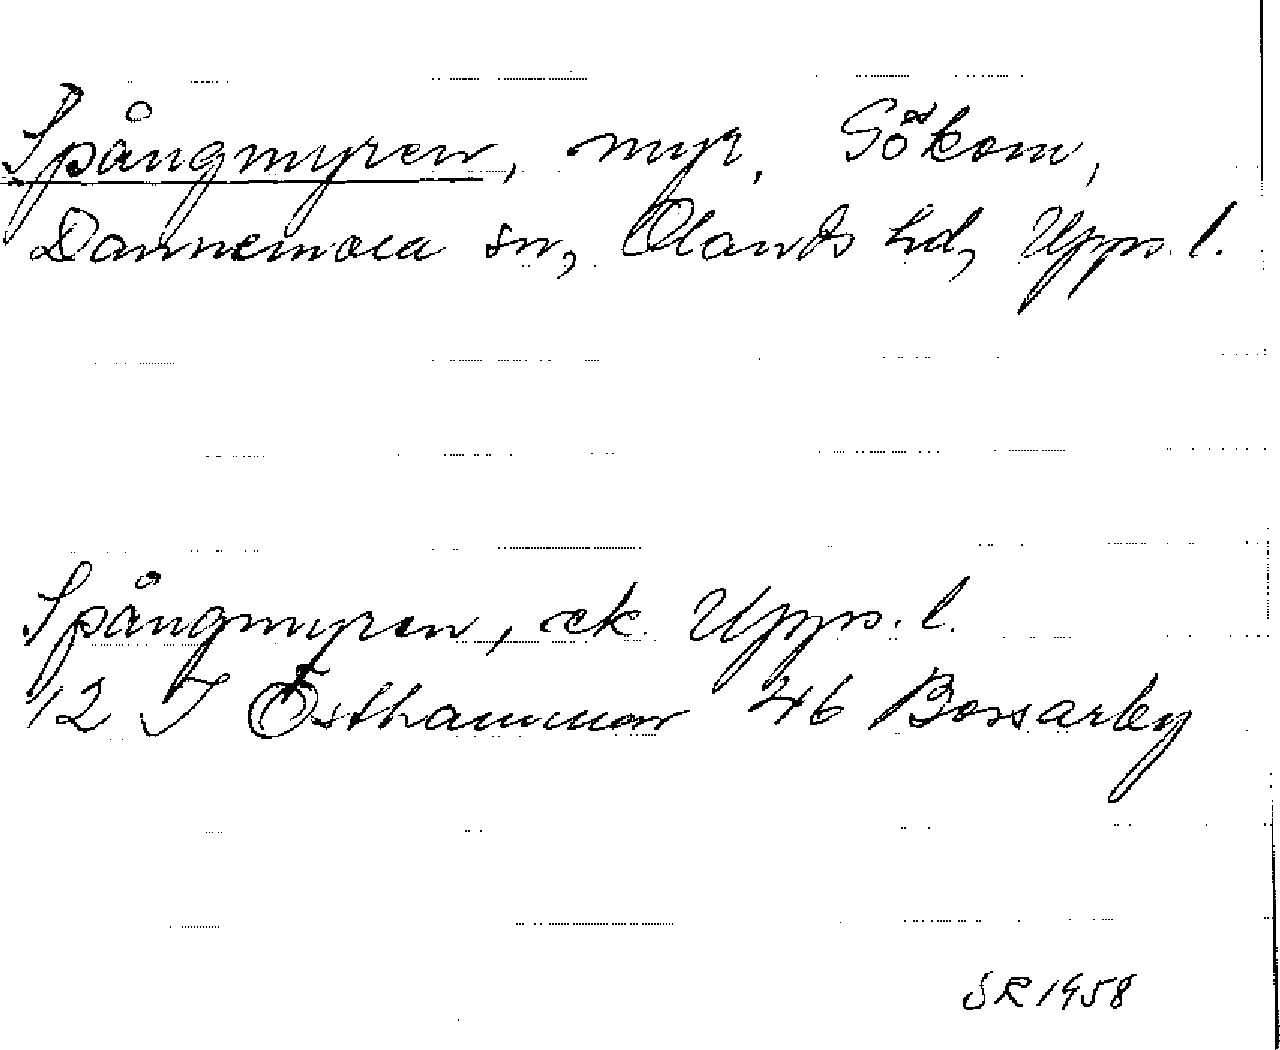 Spångmyren, myr, Sökom,
Dannemora sn, Olands hd, Upps. l.
Spångmyren, ek Upps. l.
12 I Östhammar 46 Bossarby
SR 1958